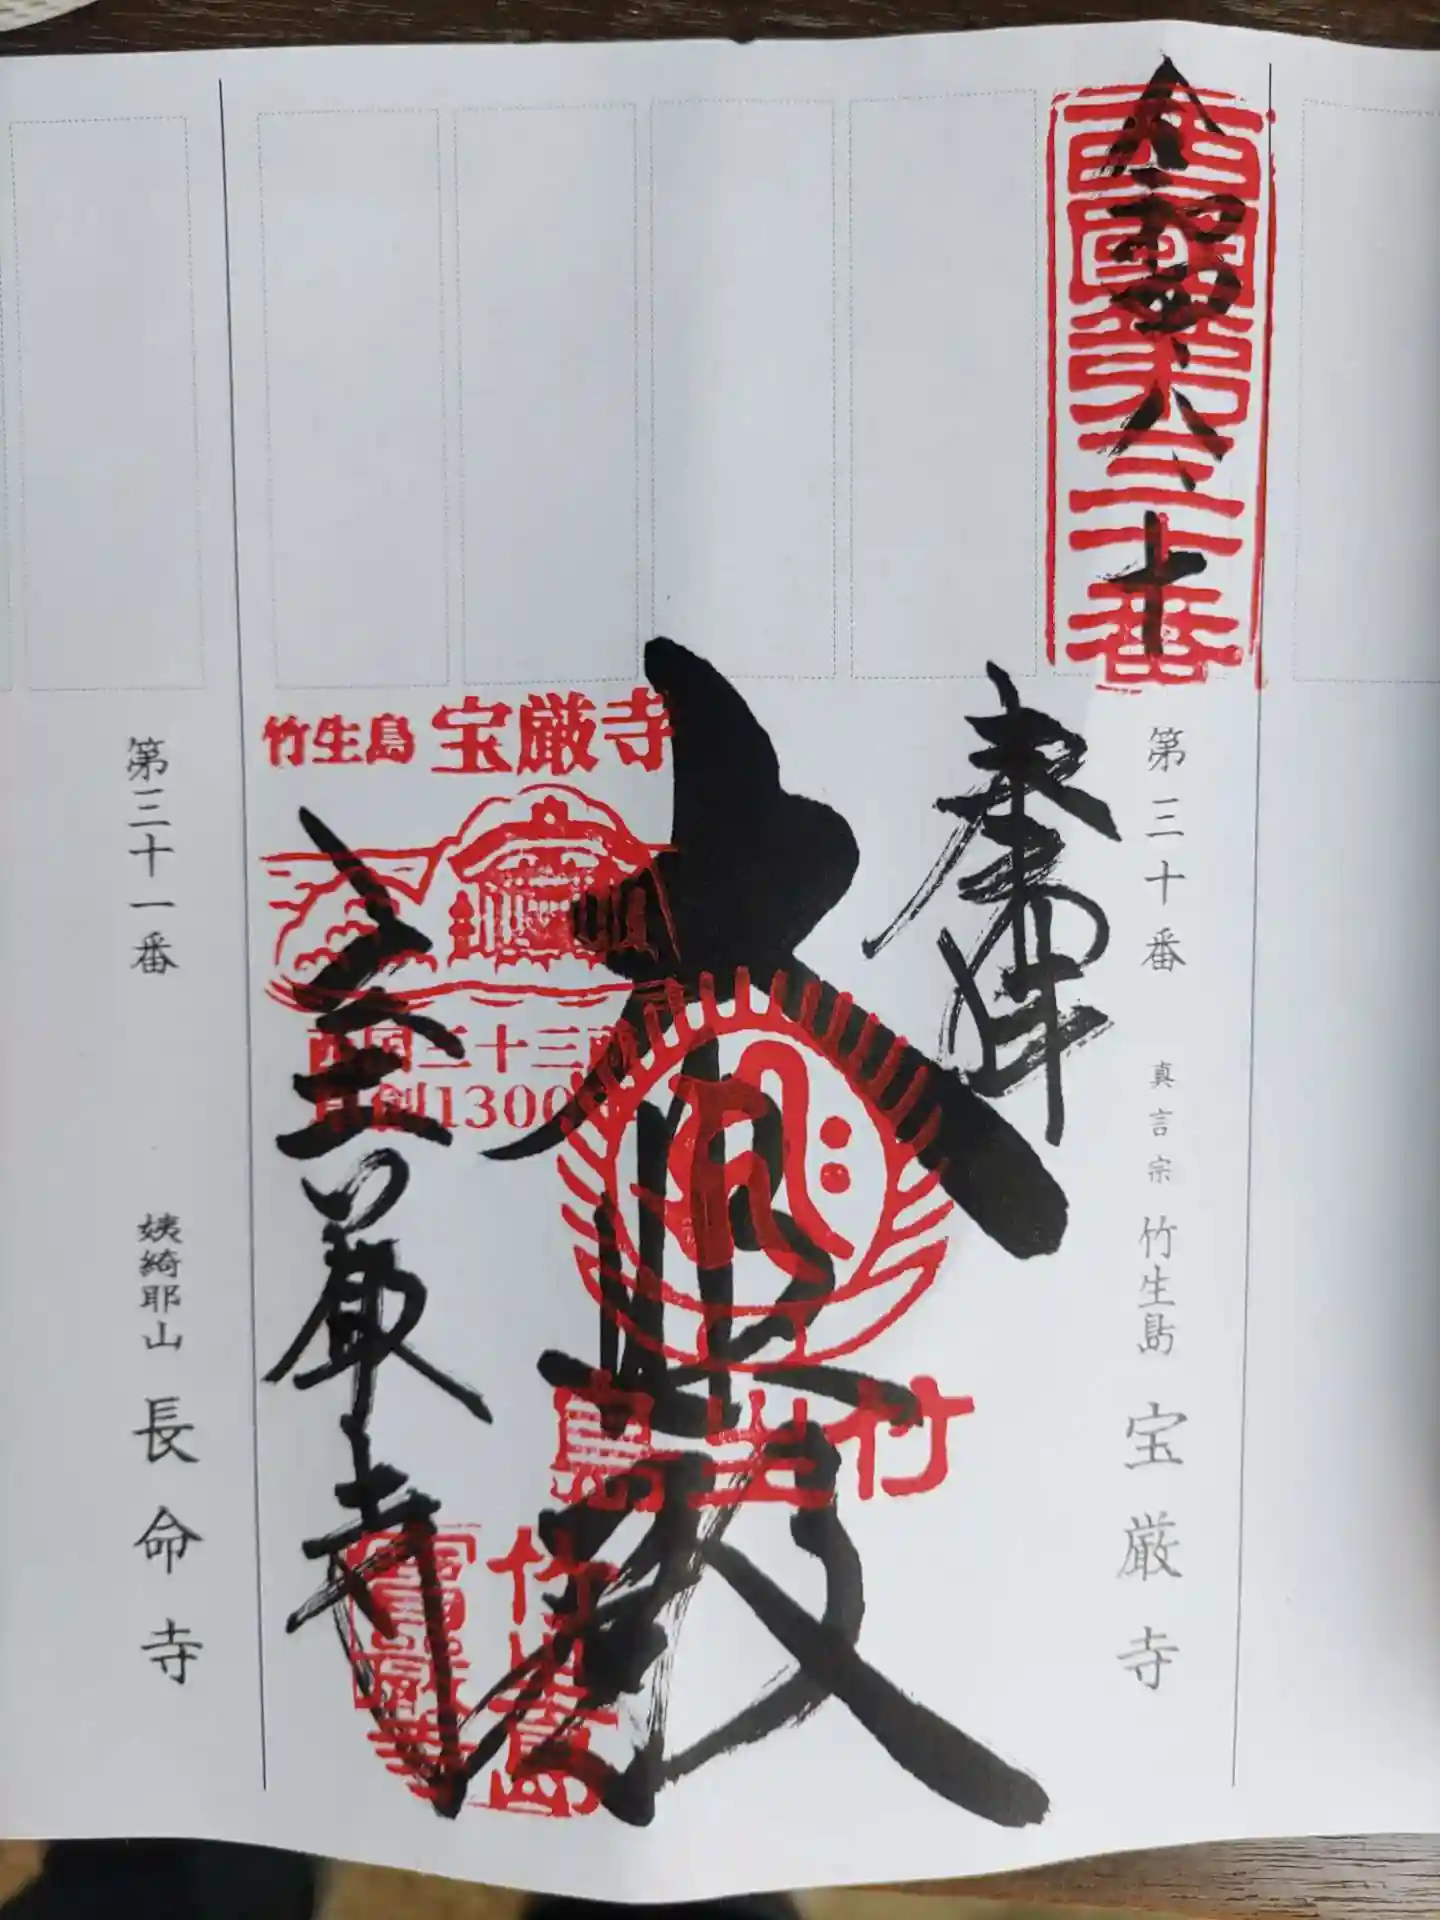 西國第三十番
令和四、八、十
第三十番
真言宗 竹生島 宝厳寺
奉拝
大悲殿
竹生島
竹生島 宝厳寺
西国三十三所
草創1300年
宝厳寺
竹生島
寶厳寺
第三十一番
姨綺耶山 長命寺